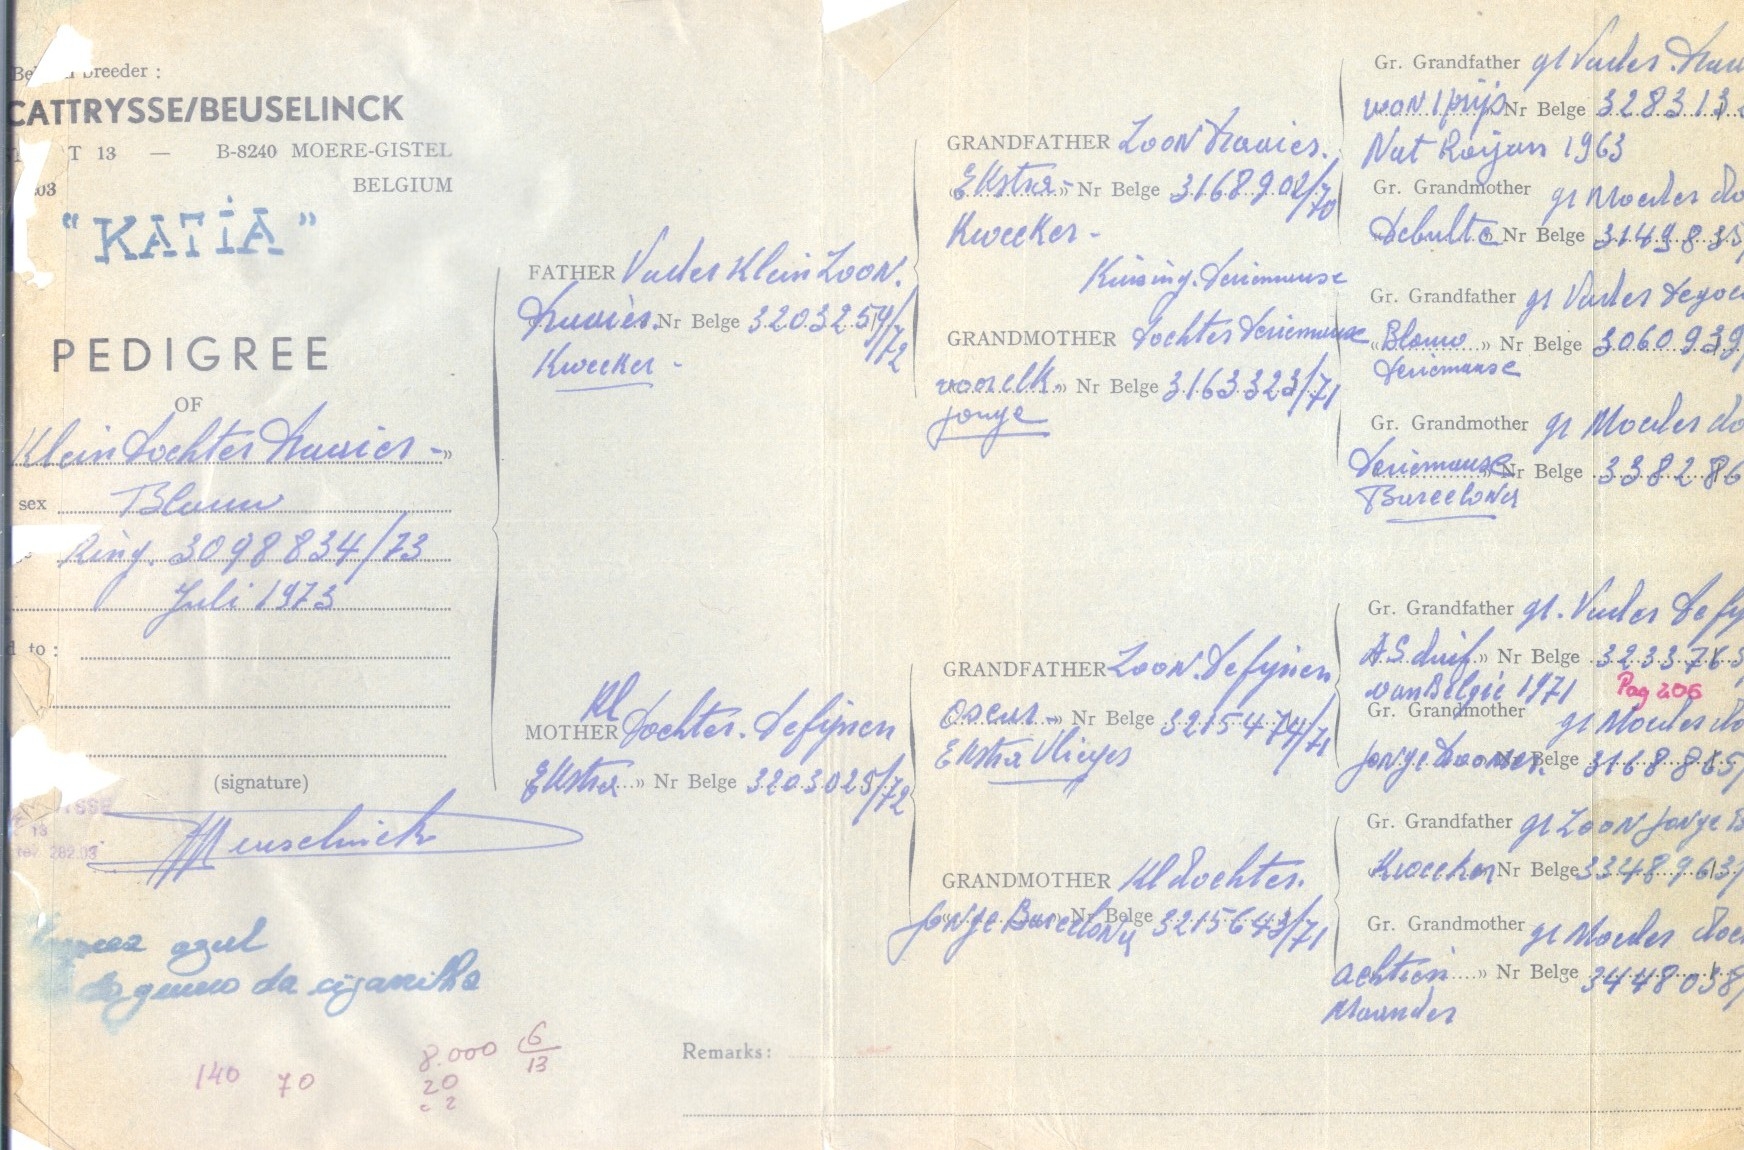 breeder :
CATTRYSSE/BEUSELINCK
T 13 — B-8240 MOERE-GISTEL
03 BELGIUM
"KATIA"
PEDIGREE
OF
Klein Dochter -»
sex Blauw
Ring. 3098834/73
Juli 1973
d to :
(signature)
13
282.03
azul
da
140 70
8.000 6/13
20
2
FATHER Vader Klein Zoon.
Nr Belge 3203254/72
Kweeker -
Kl
MOTHER Dochter. Defijnen
Ekstra » Nr Belge 3203025/72
GRANDFATHER Zoon
«Ekstra- Nr Belge 3168902/70
Kweeker -
Kruising. Deriemauxe
GRANDMOTHER Dochter Deriemauxe
voor elk.» Nr Belge 3163323/71
jonge
GRANDFATHER Zoon. Defijnen
Oscar -» Nr Belge 3215474/71
Ekstra Vlieger
GRANDMOTHER Kl Dochter.
Jonge Barcelona Nr Belge 3215643/71
Gr. Grandfather gr Vader
won 1 prijs Nr Belge 328313
Nat 1963
Gr. Grandmother gr Moeder do
Nr Belge 3149835/
Gr. Grandfather gr Vader
«Blauw » Nr Belge 3060939
Deriemauxe
Gr. Grandmother gr Moeder do
Deriemauxe Nr Belge 338286
Barcelona
Gr. Grandfather gr. Vader Defij
AS duif » Nr Belge 3233763
van België 1971 Pag 206
Gr. Grandmother gr Moeder do
Jonge Nr Belge 3168865/
Gr. Grandfather gr Zoon Jonge B
Kweeker Nr Belge 3348963/
Gr. Grandmother gr Moeder Doc
achtien » Nr Belge 3448038/
Maander
Remarks: